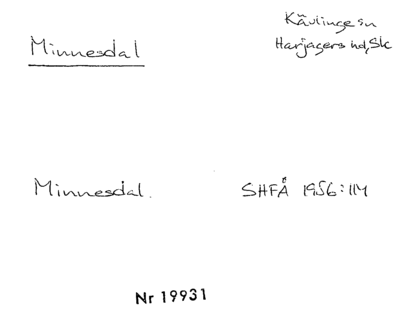 Minnesdal
Kävlinge sn
Harjagers hd, Sk
Minnesdal.
SHFÅ 1956:114
Nr 19931